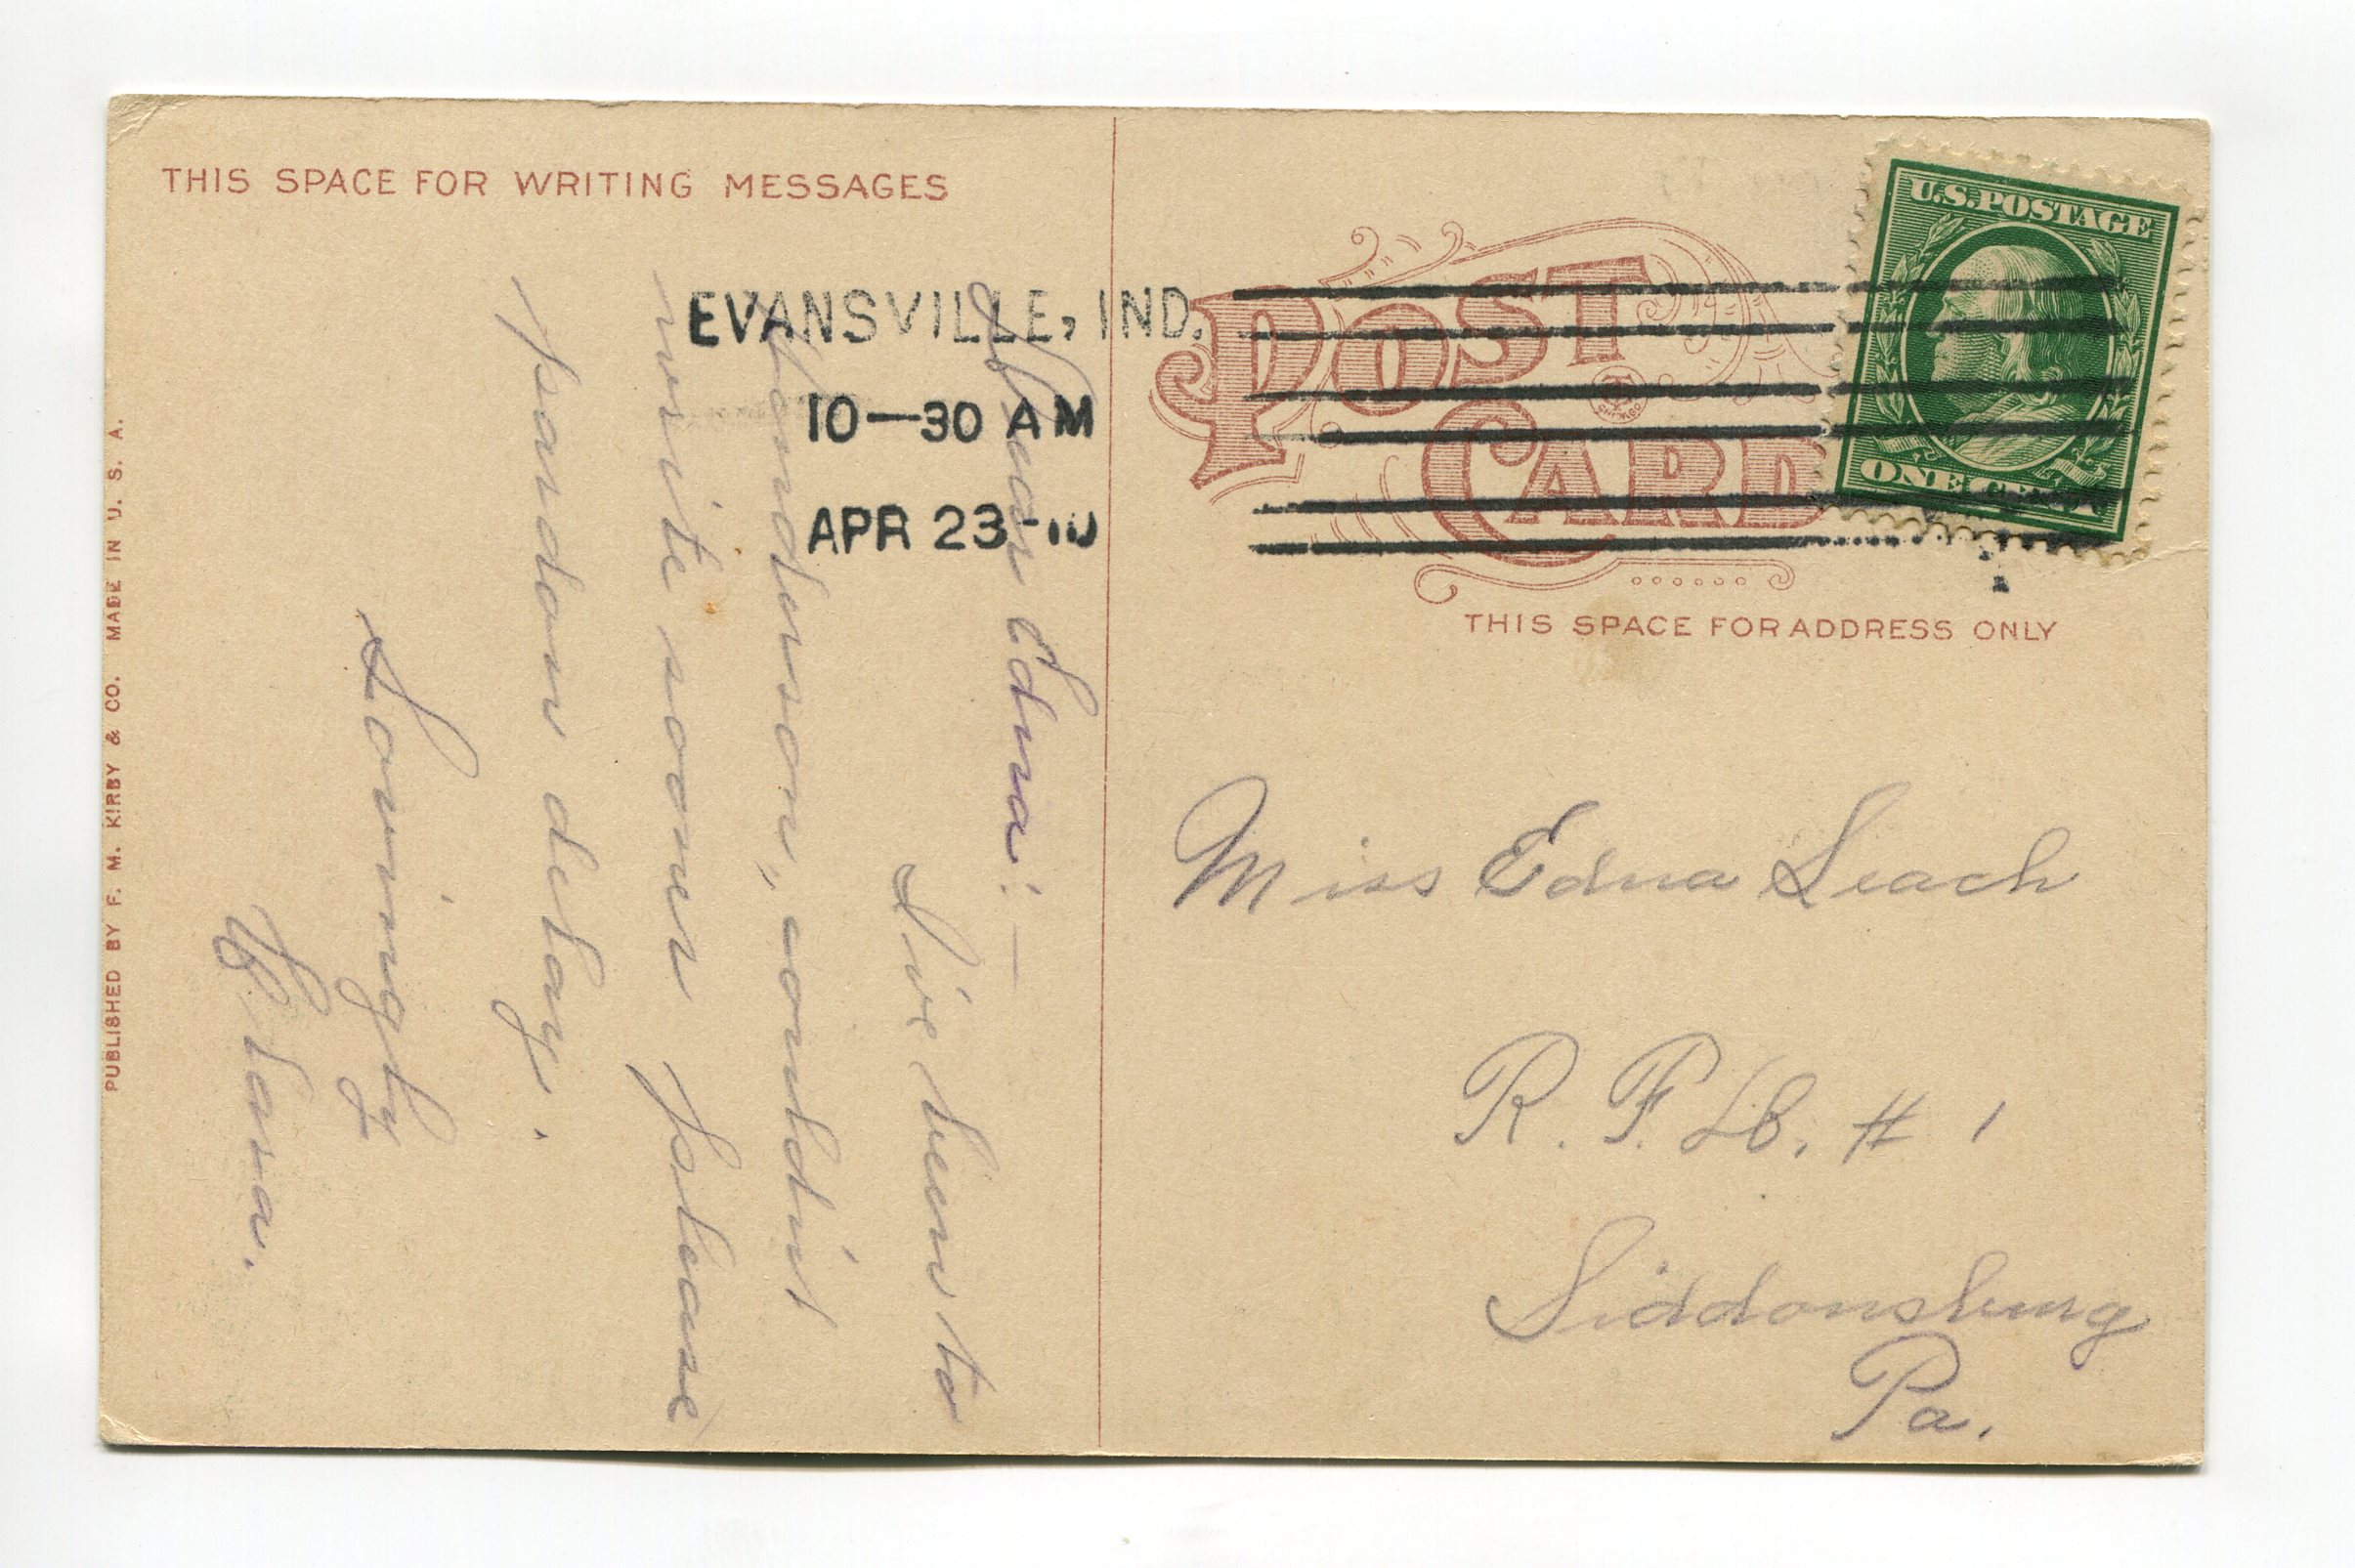 THIS SPACE FOR WRITING MESSAGES
EVANSVILLE, IND.
10—30 AM
APR 23-10
Dear Edna:—
I've been to
Henderson, couldn't
write sooner please
pardon delay.
Lovingly
Clara.
PUBLISHED BY F. M. KIRBY & CO. MADE IN U. S. A.
POST
CARD
CHICAGO
U.S. POSTAGE
ONE CENT
THIS SPACE FOR ADDRESS ONLY
Miss Edna Leach
R. F. D. # 1
Siddonsburg
Pa.